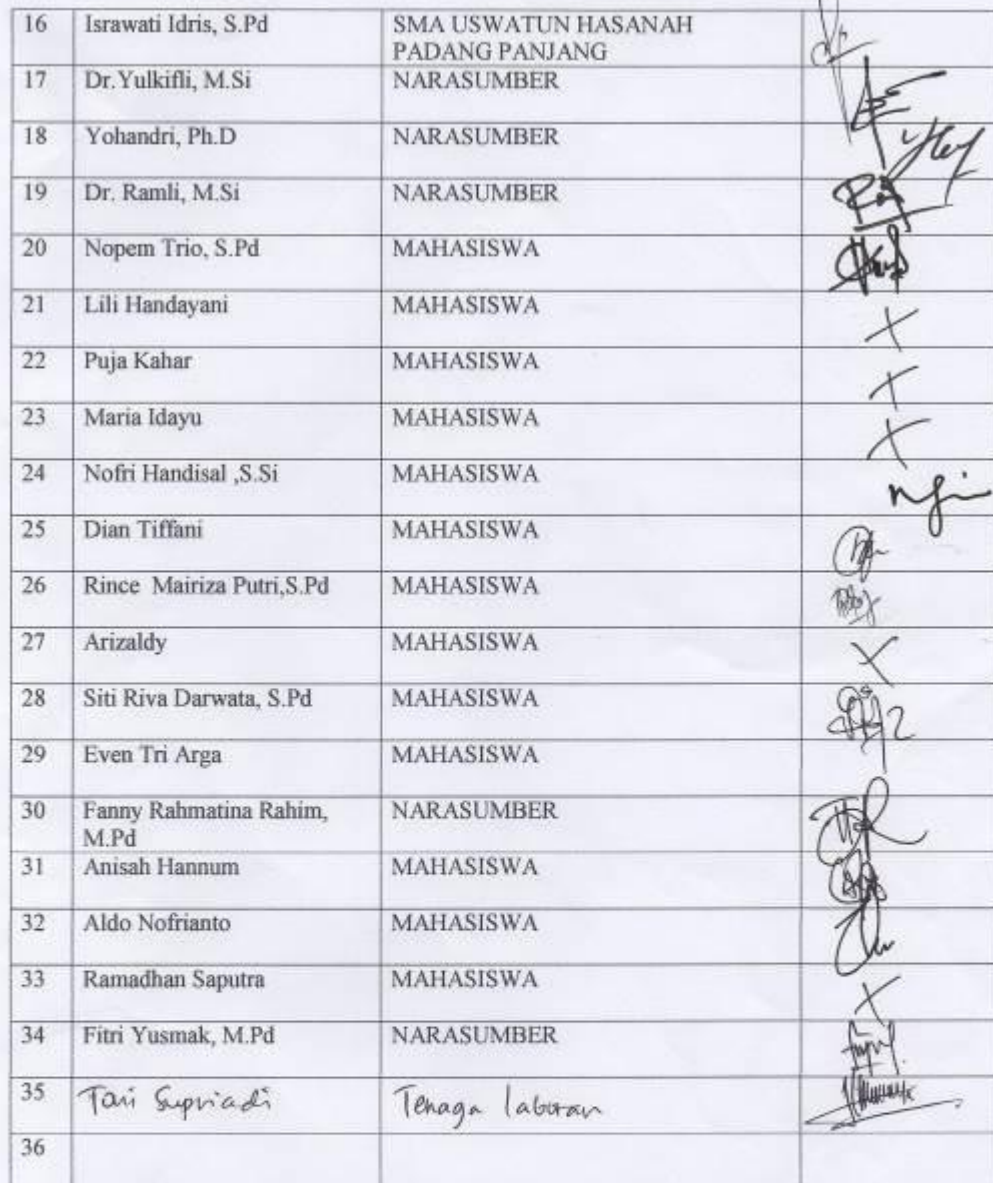 16 Israwati Idris, S.Pd SMA USWATUN HASANAH
PADANG PANJANG
17 Dr.Yulkifli, M.Si NARASUMBER
18 Yohandri, Ph.D NARASUMBER
19 Dr. Ramli, M.Si NARASUMBER
20 Nopem Trio, S.Pd MAHASISWA
21 Lili Handayani MAHASISWA
22 Puja Kahar MAHASISWA
23 Maria Idayu MAHASISWA
24 Nofri Handisal ,S.Si MAHASISWA
25 Dian Tiffani MAHASISWA
26 Rince Mairiza Putri,S.Pd MAHASISWA
27 Arizaldy MAHASISWA
28 Siti Riva Darwata, S.Pd MAHASISWA
29 Even Tri Arga MAHASISWA
30 Fanny Rahmatina Rahim, NARASUMBER
M.Pd
31 Anisah Hannum MAHASISWA
32 Aldo Nofrianto MAHASISWA
33 Ramadhan Saputra MAHASISWA
34 Fitri Yusmak, M.Pd NARASUMBER
35 Supriadi Tenaga laboran
36